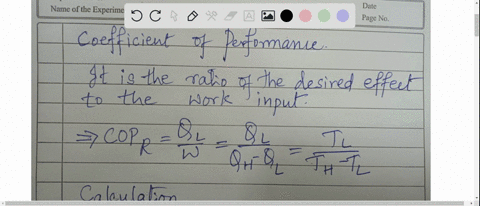 Name of the Experime
Date
Page No.
Coefficient of Performance.
It is the ratio of the desired effect
to the work input.
⇒ COP_R = Q_L/W = Q_L/(Q_H-Q_L) = T_L/(T_H-T_L)
Calculation